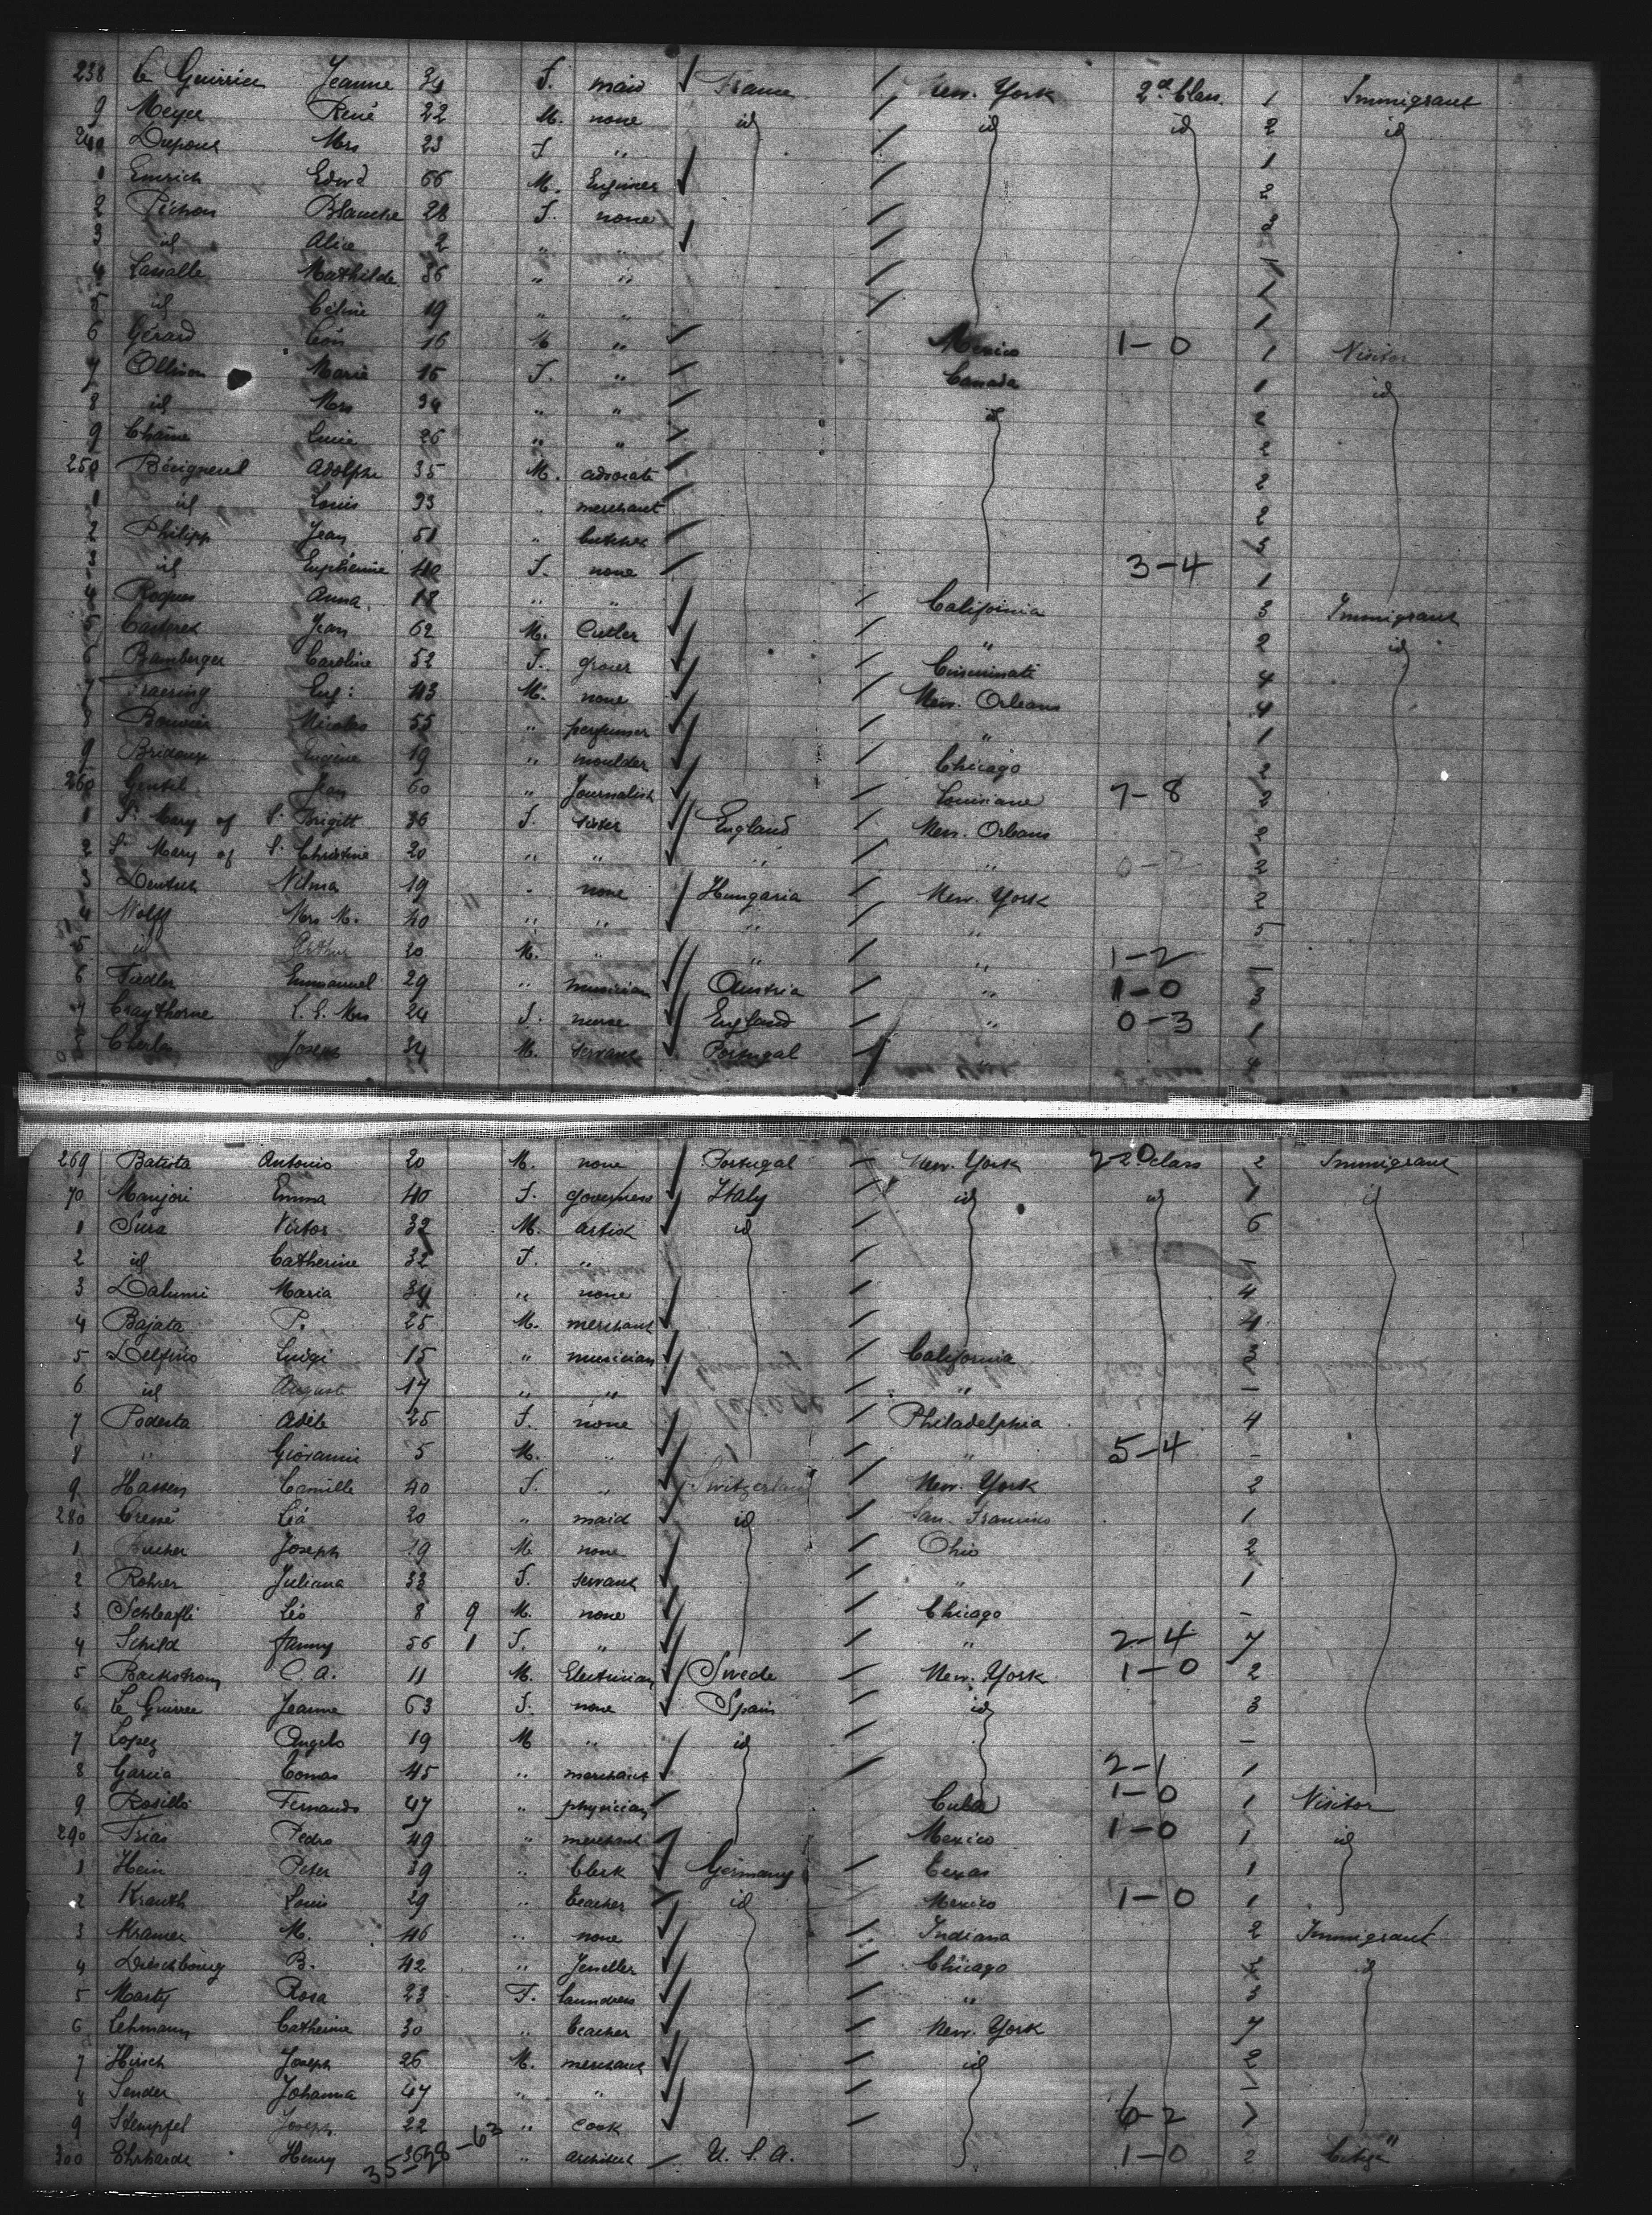 238 Le Guirriec Jeanne 34 F. maid France New. York 2d Class. 1 Immigrant
9 Meyer René 22 M. none id id id 2 id
240 Dupont Mrs 23 F " 1
1 Emrich Edwd 66 M. Engineer 2
2 Pichon Blanche 28 F. none 3
3 id Alice 2 " "
4 Lassalle Mathilde 36 " " 1
5 id Céline 19 " " 1
6 Gérard Léon 16 M " Mexico 1-0 1 Visitor
7 Ollivon Marie 15 F. " Canada 1 id
8 id Mrs 34 " " id 2
9 Chaine Lucie 26 " " 2
250 Bérigneul Adolphe 35 M. advocate 2
1 id Louis 33 " merchant 2
2 Philipp Jean 51 " butcher 5
3 id Euphémie 40 F. none 3-4 1
4 Roques Anna 18 " " California 3 Immigrant
5 Casterex Jean 62 M. Cutler " 2 id
6 Bamberger Caroline 52 F. grocer Cincinnati 4
7 Fraering Eug: 43 M. none New. Orleans 4
8 Bouvier Nicolas 55 " perfumer " 1
9 Bridoux Eugène 19 " moulder Chicago 2
260 Gentil Jean 60 " Journalist Louisiane 7-8 2
1 St Mary of St Brigitt 36 F. sister England New. Orleans 2
2 St Mary of St Christine 20 " " " " 0-2 2
3 Deutsch Vilma 19 " none Hungaria New. York 2
4 Wolff Mrs M. 40 " " " " 5
5 id Arthur 20 M. " " " 1-2
6 Fiedler Emmanuel 29 " musician Austria " 1-0 3
7 Craythorne L. E. Mrs 24 F. nurse England " 0-3 1
8 Joseph 34 M. servant Portugal " 4
269 Batista Antonio 20 M. none Portugal New. York 2d class 2 Immigrant
70 Manjori Emma 40 F. governess Italy id id 1 id
1 Sura Victor 32 M. artist id 6
2 id Catherine 32 F. " 1
3 Dalumi Maria 34 " none 4
4 Bajata P. 25 M. merchant 4
5 Delfino Luigi 15 " musician California 3
6 id August 17 " " " -
7 Podesta Adèle 25 F. none Philadelphia 4
8 " Giovanni 5 M. " " 5-4 -
9 Hassen Camille 40 F. " Switzerland New. York 2
280 Crené Léa 20 " maid id San. Francisco 1
1 Bucher Joseph 19 M. none Ohio 2
2 Rohrer Juliana 33 F. servant " 1
3 Schleafli Léo 8 9 M. none Chicago -
4 Schild Fanny 56 1 F. " " 2-4 7
5 Backstrom C. A. 11 M. Electrician Swede New. York 1-0 2
6 Le Guirrec Jeanne 63 F. none Spain id 3
7 Lopez Angelo 19 M " id -
8 Garcia Tomas 45 " merchant 2-1 1
9 Rosillo Fernando 47 " physician Cuba 1-0 1 Visitor
290 Frias Pedro 49 " merchant Mexico 1-0 1 id
1 Hein Peter 39 " Clerk Germany Texas 1
2 Krauth Louis 29 " teacher id Mexico 1-0 1
3 Kramer M. 46 " none Indiana 2 Immigrant
4 Dreschbourg B. 42 " Jeweller Chicago 2 id
5 Marty Rosa 23 F. laundress " 3
6 Lehmann Catherine 30 " teacher New. York 7
7 Hirsch Joseph 26 M. merchant id 2
8 Sender Johanna 47 " " 1
9 Stempfel Joseph 22 " cook 6-2
300 Ehrhardt Henry 36 " architect U. S. A. 1-0 2
35-28-63